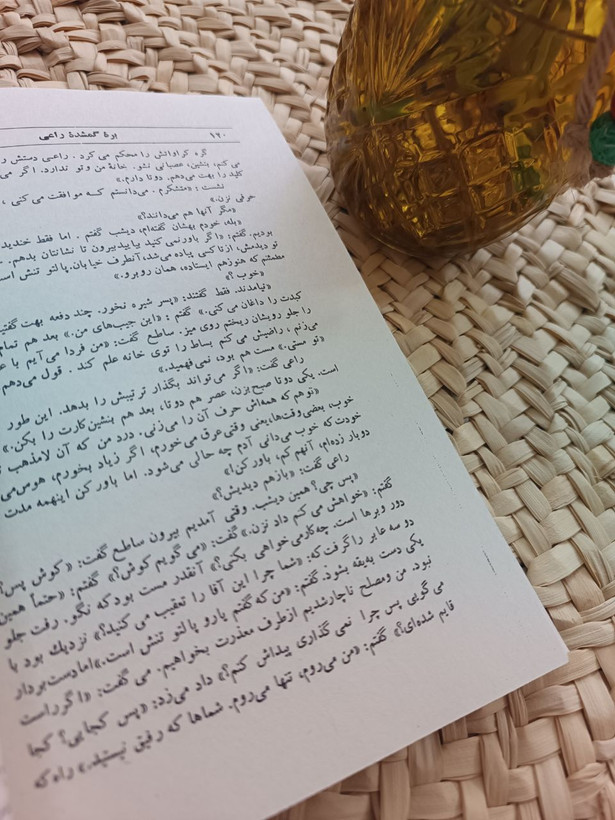 ۱۶۰ برهٔ گمشدهٔ راعی
گره کراواتش را محکم می کرد. راعی دستش را
می کنم، بنشین، عصبانی نشو. خانهٔ من و تو ندارد. اگر می
کلید را بهت می‌دهم. دوتا دارم.»
نشست: «متشکرم. می‌دانستم که موافقت می کنی،
حرفی نزن.»
«مگر آنها هم می‌دانند؟»
«بله، خودم بهشان گفته‌ام، دیشب گفتم. اما فقط خندیدند
بردیم. گفتم: «اگر باور نمی کنید بیایید بیرون تا نشانتان بدهم.
تو دیدمش، از تاکسی پیاده می‌شد، آنطرف خیابان. پالتو تنش است
مطمئنم که هنوز هم ایستاده، همان روبرو.»
«خوب؟»
«نیامدند. فقط گفتند: «پسر شیره نخور. چند دفعه بهت گفتیم
کبدت را داغان می کنی.» گفتم: «این جیب‌های من.» بعد هم تمام
را جلو رویشان ریختم روی میز. ساطع گفت: «من فردا می‌آیم با
می‌زنم، راضیش می کنم بساط را توی خانه علم کند. قول می‌دهم
«تو مستی.» مست هم بود، نمی‌فهمید.»
راعی گفت: «اگر می‌تواند بگذار ترتیبش را بدهد. این طور
است. یکی دوتا صبح بزن، عصر هم دوتا، بعد هم بنشین کارت را بکن.»
«تو هم که همه‌اش حرف آن را می‌زنی. درد من که آن لامذهب
خوب، بعضی وقت‌ها، یعنی وقتی عرق می‌خورم، اگر زیاد بخورم، هوس می
خودت که خوب می‌دانی آدم چه حالی می‌شود. اما باور کن اینهمه مدت
دوبار زده‌ام، آنهم کم، باور کن!»
راعی گفت: «باز هم دیدیش؟»
«پس چی؟ همین دیشب. وقتی آمدیم بیرون ساطع گفت: «کوش پس؟
گفتم: «خواهش می کنم داد نزن.» گفت: «می گویم کوش؟» گفتم: «حتماً همین
دور و برها است. چه کارمی خواهی بکنی؟» آنقدر مست بود که نگو. رفت جلو
دو سه عابر را گرفت که: «شما چرا این آقا را تعقیب می کنید؟» نزدیك بود با
یکی دست به یقه بشود. گفتم: «من که گفتم یارو پالتو تنش است.» اما دست بردار
نبود. من و مصلح ناچار شدیم از طرف معذرت بخواهیم. می گفت: «اگر راست
می گویی پس چرا نمی گذاری پیداش کنم؟» داد می‌زد: «پس کجایی؟ کجا
قایم شده‌ای؟» گفتم: «من می‌روم، تنها می‌روم. شماها که رفیق نیستید.» راه که